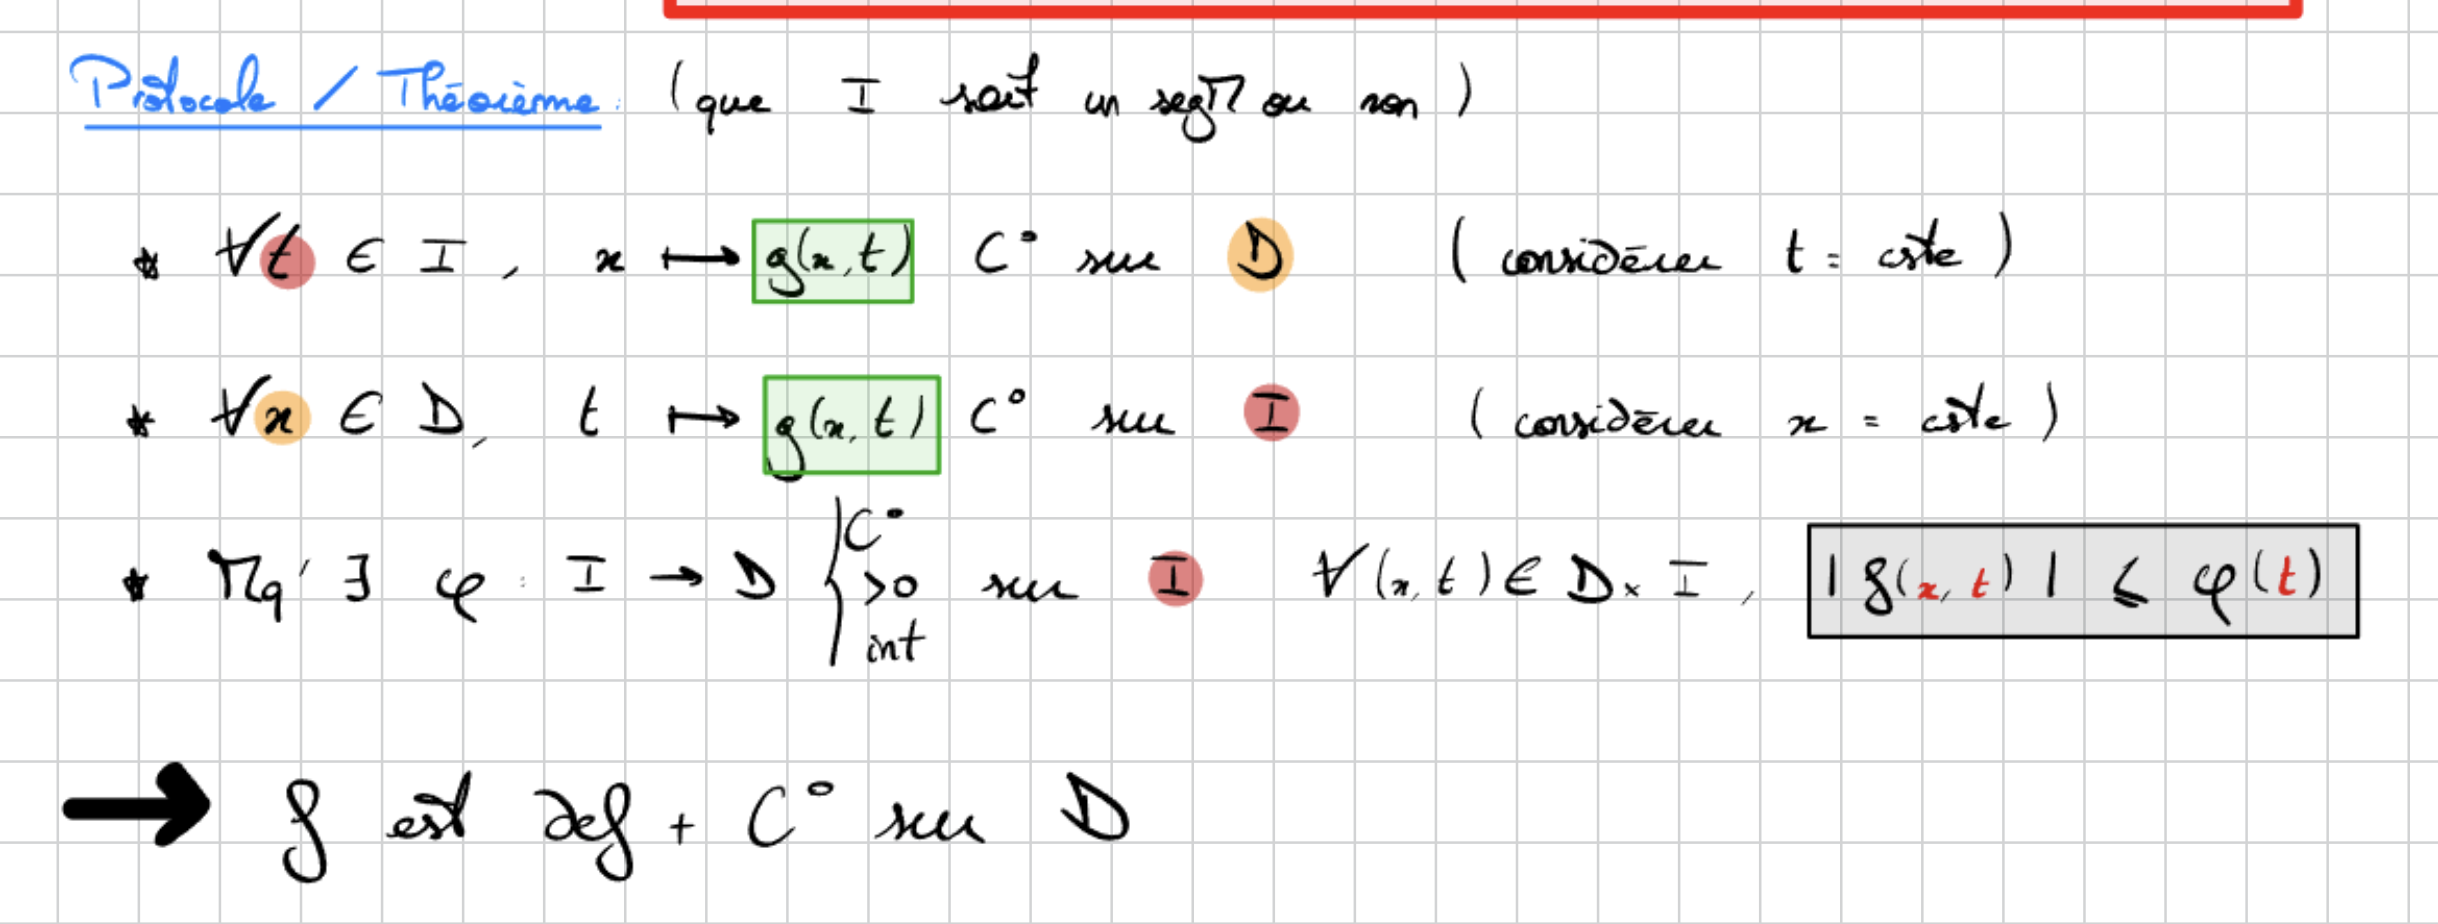 Protocole / Théorème : (que I soit un segM ou non)
* ∀t ∈ I, x ↦ g(x,t) C° sur D (considérer t = cste)
* ∀x ∈ D, t ↦ g(x,t) C° sur I (considérer x = cste)
* Mq' ∃ φ : I → D { C° >0 int sur I ∀(x,t) ∈ D × I, |g(x,t)| ≤ φ(t)
→ f est def + C° sur D